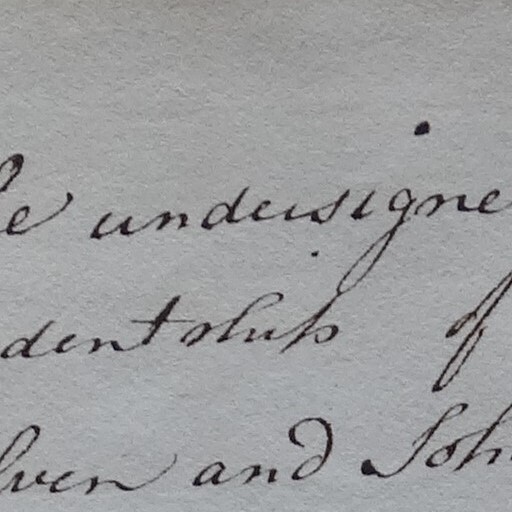 he undersigne
dentship of
lven and Joh